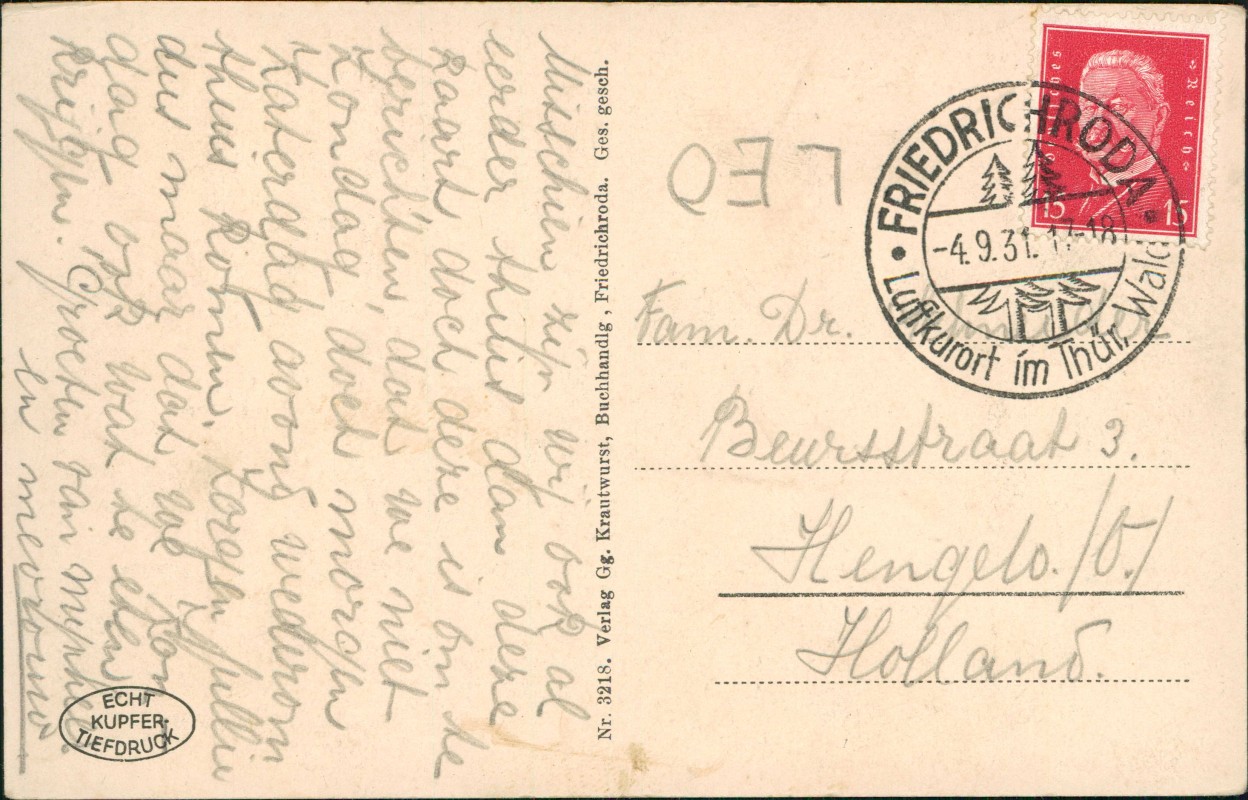 Misschien zijn wij ook al
eerder thuis dan deze
kaart doch deze is om te
berichten, dat we niet
Zondag, doch morgen
Zaterdag avond wederom
thuis komen. Zorgen jullie
dus maar dat we Zon
dag ook wat te eten
krijgen. Groeten van
en mevrouw.
ECHT
KUPFER-
TIEFDRUCK
Nr. 3218. Verlag Gg. Krautwurst, Buchhandlg, Friedrichroda. Ges. gesch.
LEO
Deutsches Reich
15 15
FRIEDRICHRODA
-4.9.31. 17-18
Luftkurort im Thür. Wald
Fam. Dr.
Beursstraat 3.
Hengelo. /O./
Holland.